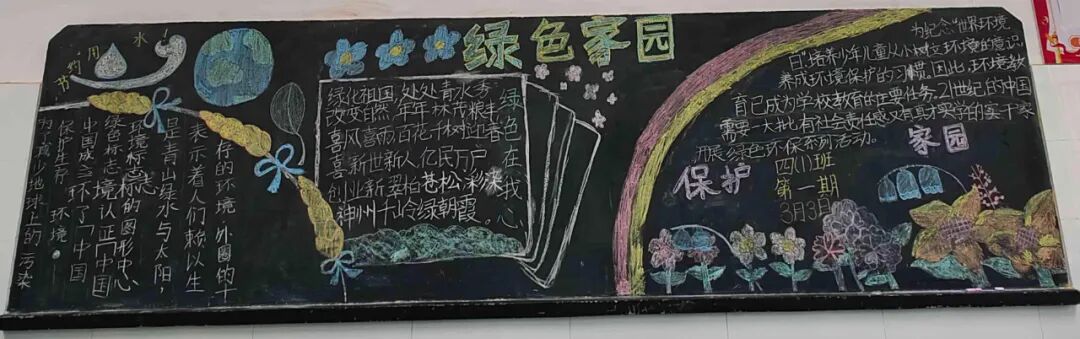 节约用水
绿色家园
为减少地球上的污染
保护生存环境。
中国成立环了「中国
绿色标志境认证「中国
环境标志的图形中心
是青山绿水与太阳,
表示着人们赖以生
存的环境外圈的十
绿化祖国处处青水秀
改变自然年年林茂粮丰
喜风喜雨百花千树迎春
喜新世新人亿民万户
创业新翠柏苍松彩深
神州千岭绿朝霞。
绿色在我心
为纪念“世界环境
日”培养少年儿童从小树立环境的意识,
养成环境保护的习惯。因此,环境教
育已成为学校教育的重要任务。21世纪的中国
需要一大批有社会责任感又有真才实学的实干家
开展绿色环保系列活动。
保护
家园
四(1)班
第一期
3月3日